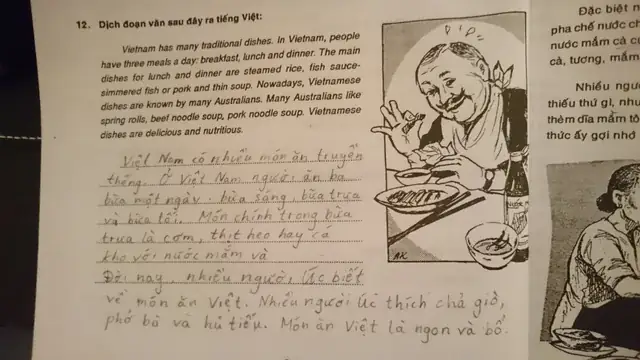 12. Dịch đoạn văn sau đây ra tiếng Việt:
Vietnam has many traditional dishes. In Vietnam, people
have three meals a day: breakfast, lunch and dinner. The main
dishes for lunch and dinner are steamed rice, fish sauce-
simmered fish or pork and thin soup. Nowadays, Vietnamese
dishes are known by many Australians. Many Australians like
spring rolls, beef noodle soup, pork noodle soup. Vietnamese
dishes are delicious and nutritious.
Việt Nam có nhiều món ăn truyền
thống. Ở Việt Nam người ăn ba
bữa một ngày: bữa sáng, bữa trưa
và bữa tối. Món chính trong bữa
trưa là cơm, thịt heo hay cá
kho với nước mắm và
Đời nay, nhiều người Úc biết
về món ăn Việt. Nhiều người Úc thích chả giò,
phở bò và hủ tiếu. Món ăn Việt là ngon và bổ.
AK
Đặc biệt n
pha chế nước ch
nước mắm cá c
cá, tương, mắm
Nhiều ngư
thiếu thứ gì, nhu
thèm dĩa mắm tô
thức ấy gợi nhớ